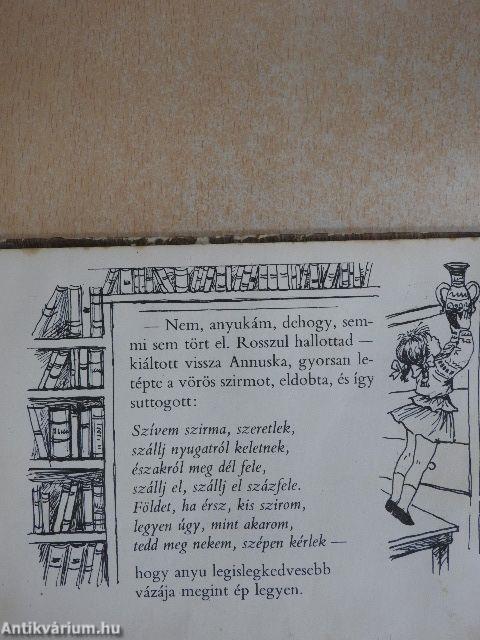 — Nem, anyukám, dehogy, sem-
mi sem tört el. Rosszul hallottad —
kiáltott vissza Annuska, gyorsan le-
tépte a vörös szirmot, eldobta, és így
suttogott:
Szívem szirma, szeretlek,
szállj nyugatról keletnek,
északról meg dél fele,
szállj el, szállj el százfele.
Földet, ha érsz, kis szirom,
legyen úgy, mint akarom,
tedd meg nekem, szépen kérlek —
hogy anyu legislegkedvesebb
vázája megint ép legyen.
Antikvárium.hu